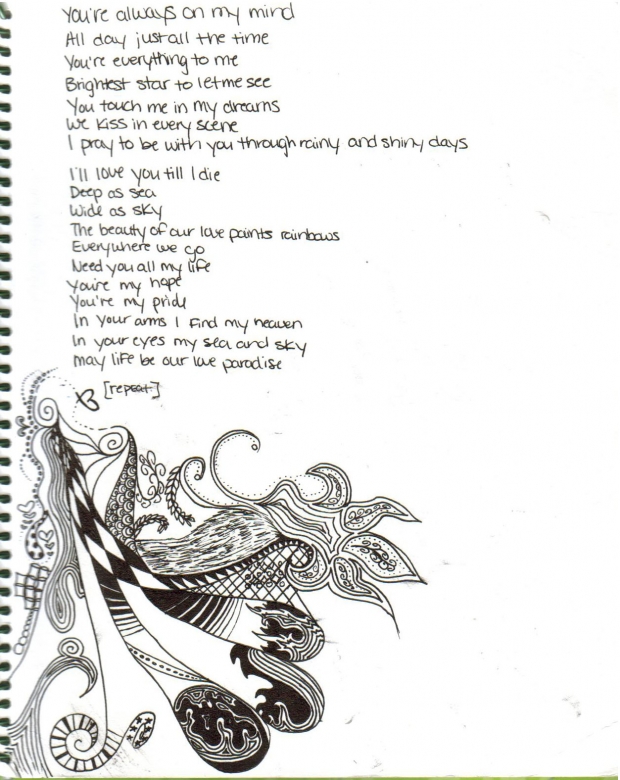 You're always on my mind
All day just all the time
You're everything to me
Brightest star to let me see
You touch me in my dreams
We kiss in every scene
I pray to be with you through rainy and shiny days
I'll love you till I die
Deep as sea
Wide as sky
The beauty of our love paints rainbows
Everywhere we go
Need you all my life
You're my hope
You're my pride
In your arms I find my heaven
In your eyes my sea and sky
may life be our love paradise
[repeat]